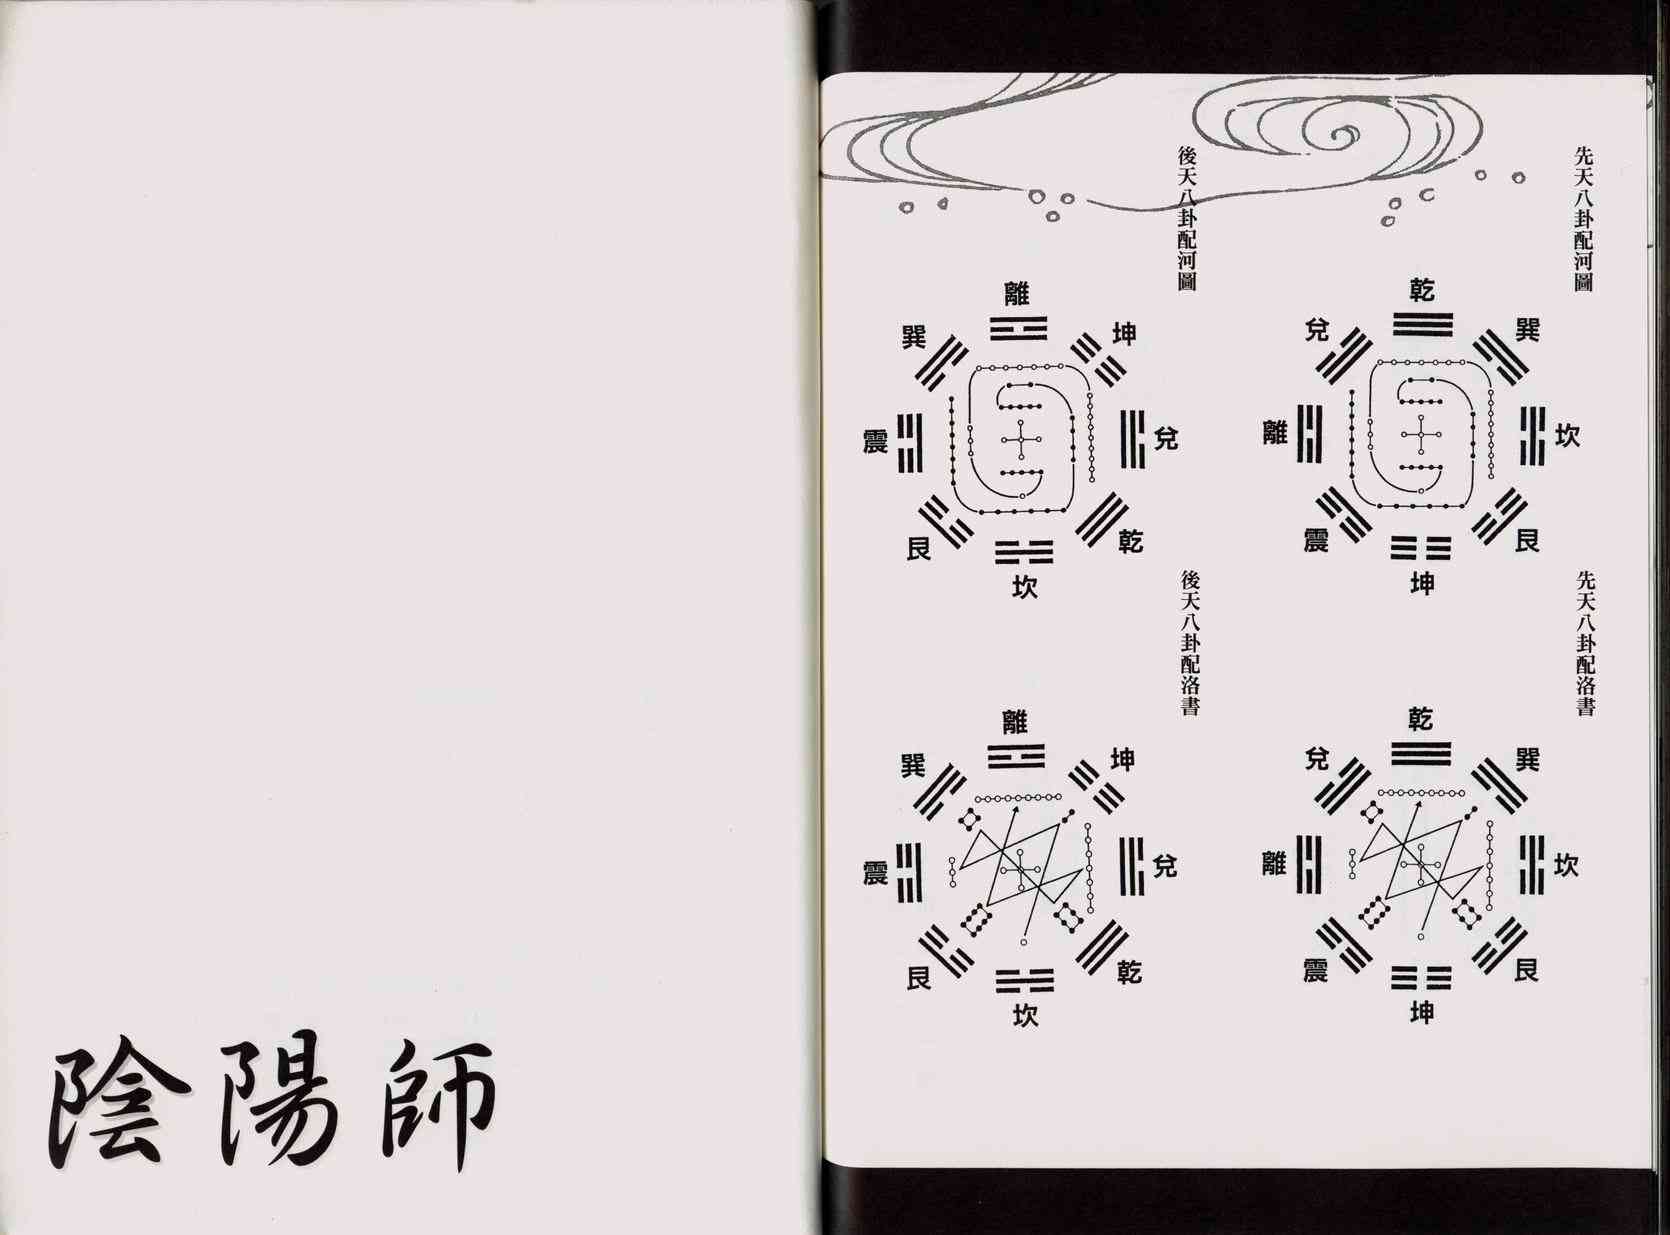 先天八卦配河圖
乾
兌
巽
離
坎
震
艮
坤
後天八卦配河圖
離
巽
坤
震
兌
艮
乾
坎
先天八卦配洛書
乾
兌
巽
離
坎
震
艮
坤
後天八卦配洛書
離
巽
坤
震
兌
艮
乾
坎
陰陽師